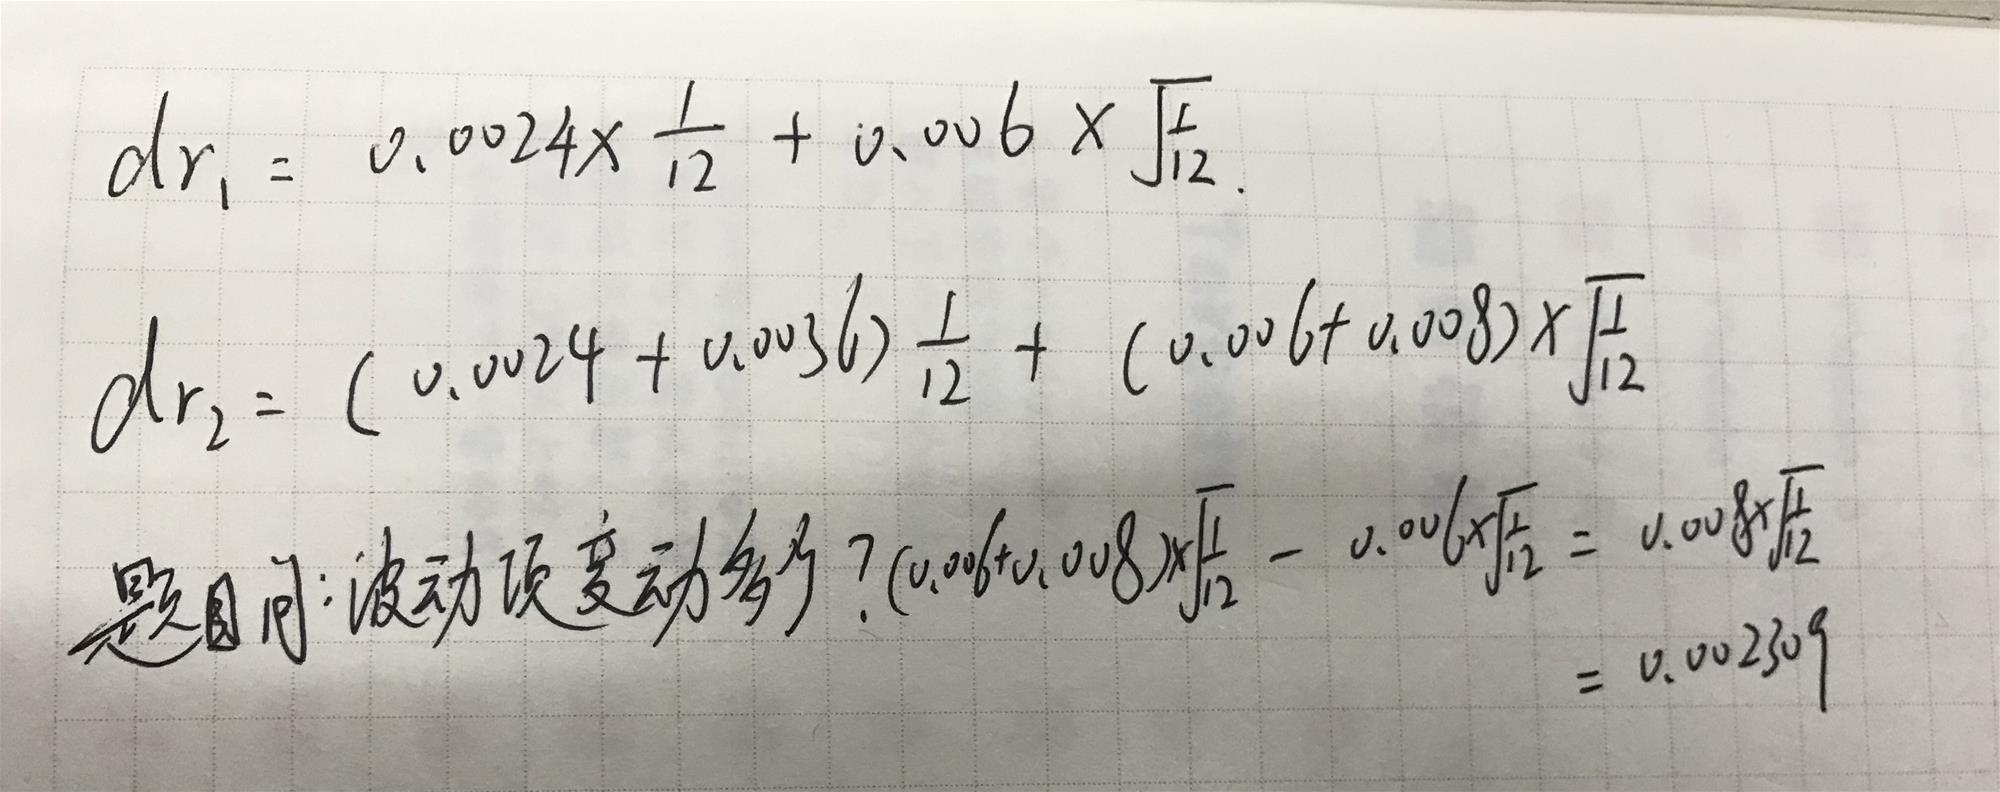 dr₁ = 0.0024 × 1/12 + 0.006 × √(1/12).
dr₂ = (0.0024 + 0.0036) 1/12 + (0.006 + 0.008) × √(1/12)
题目问: 波动项变动多少? (0.006+0.008)×√(1/12) − 0.006×√(1/12) = 0.008×√(1/12)
= 0.002309